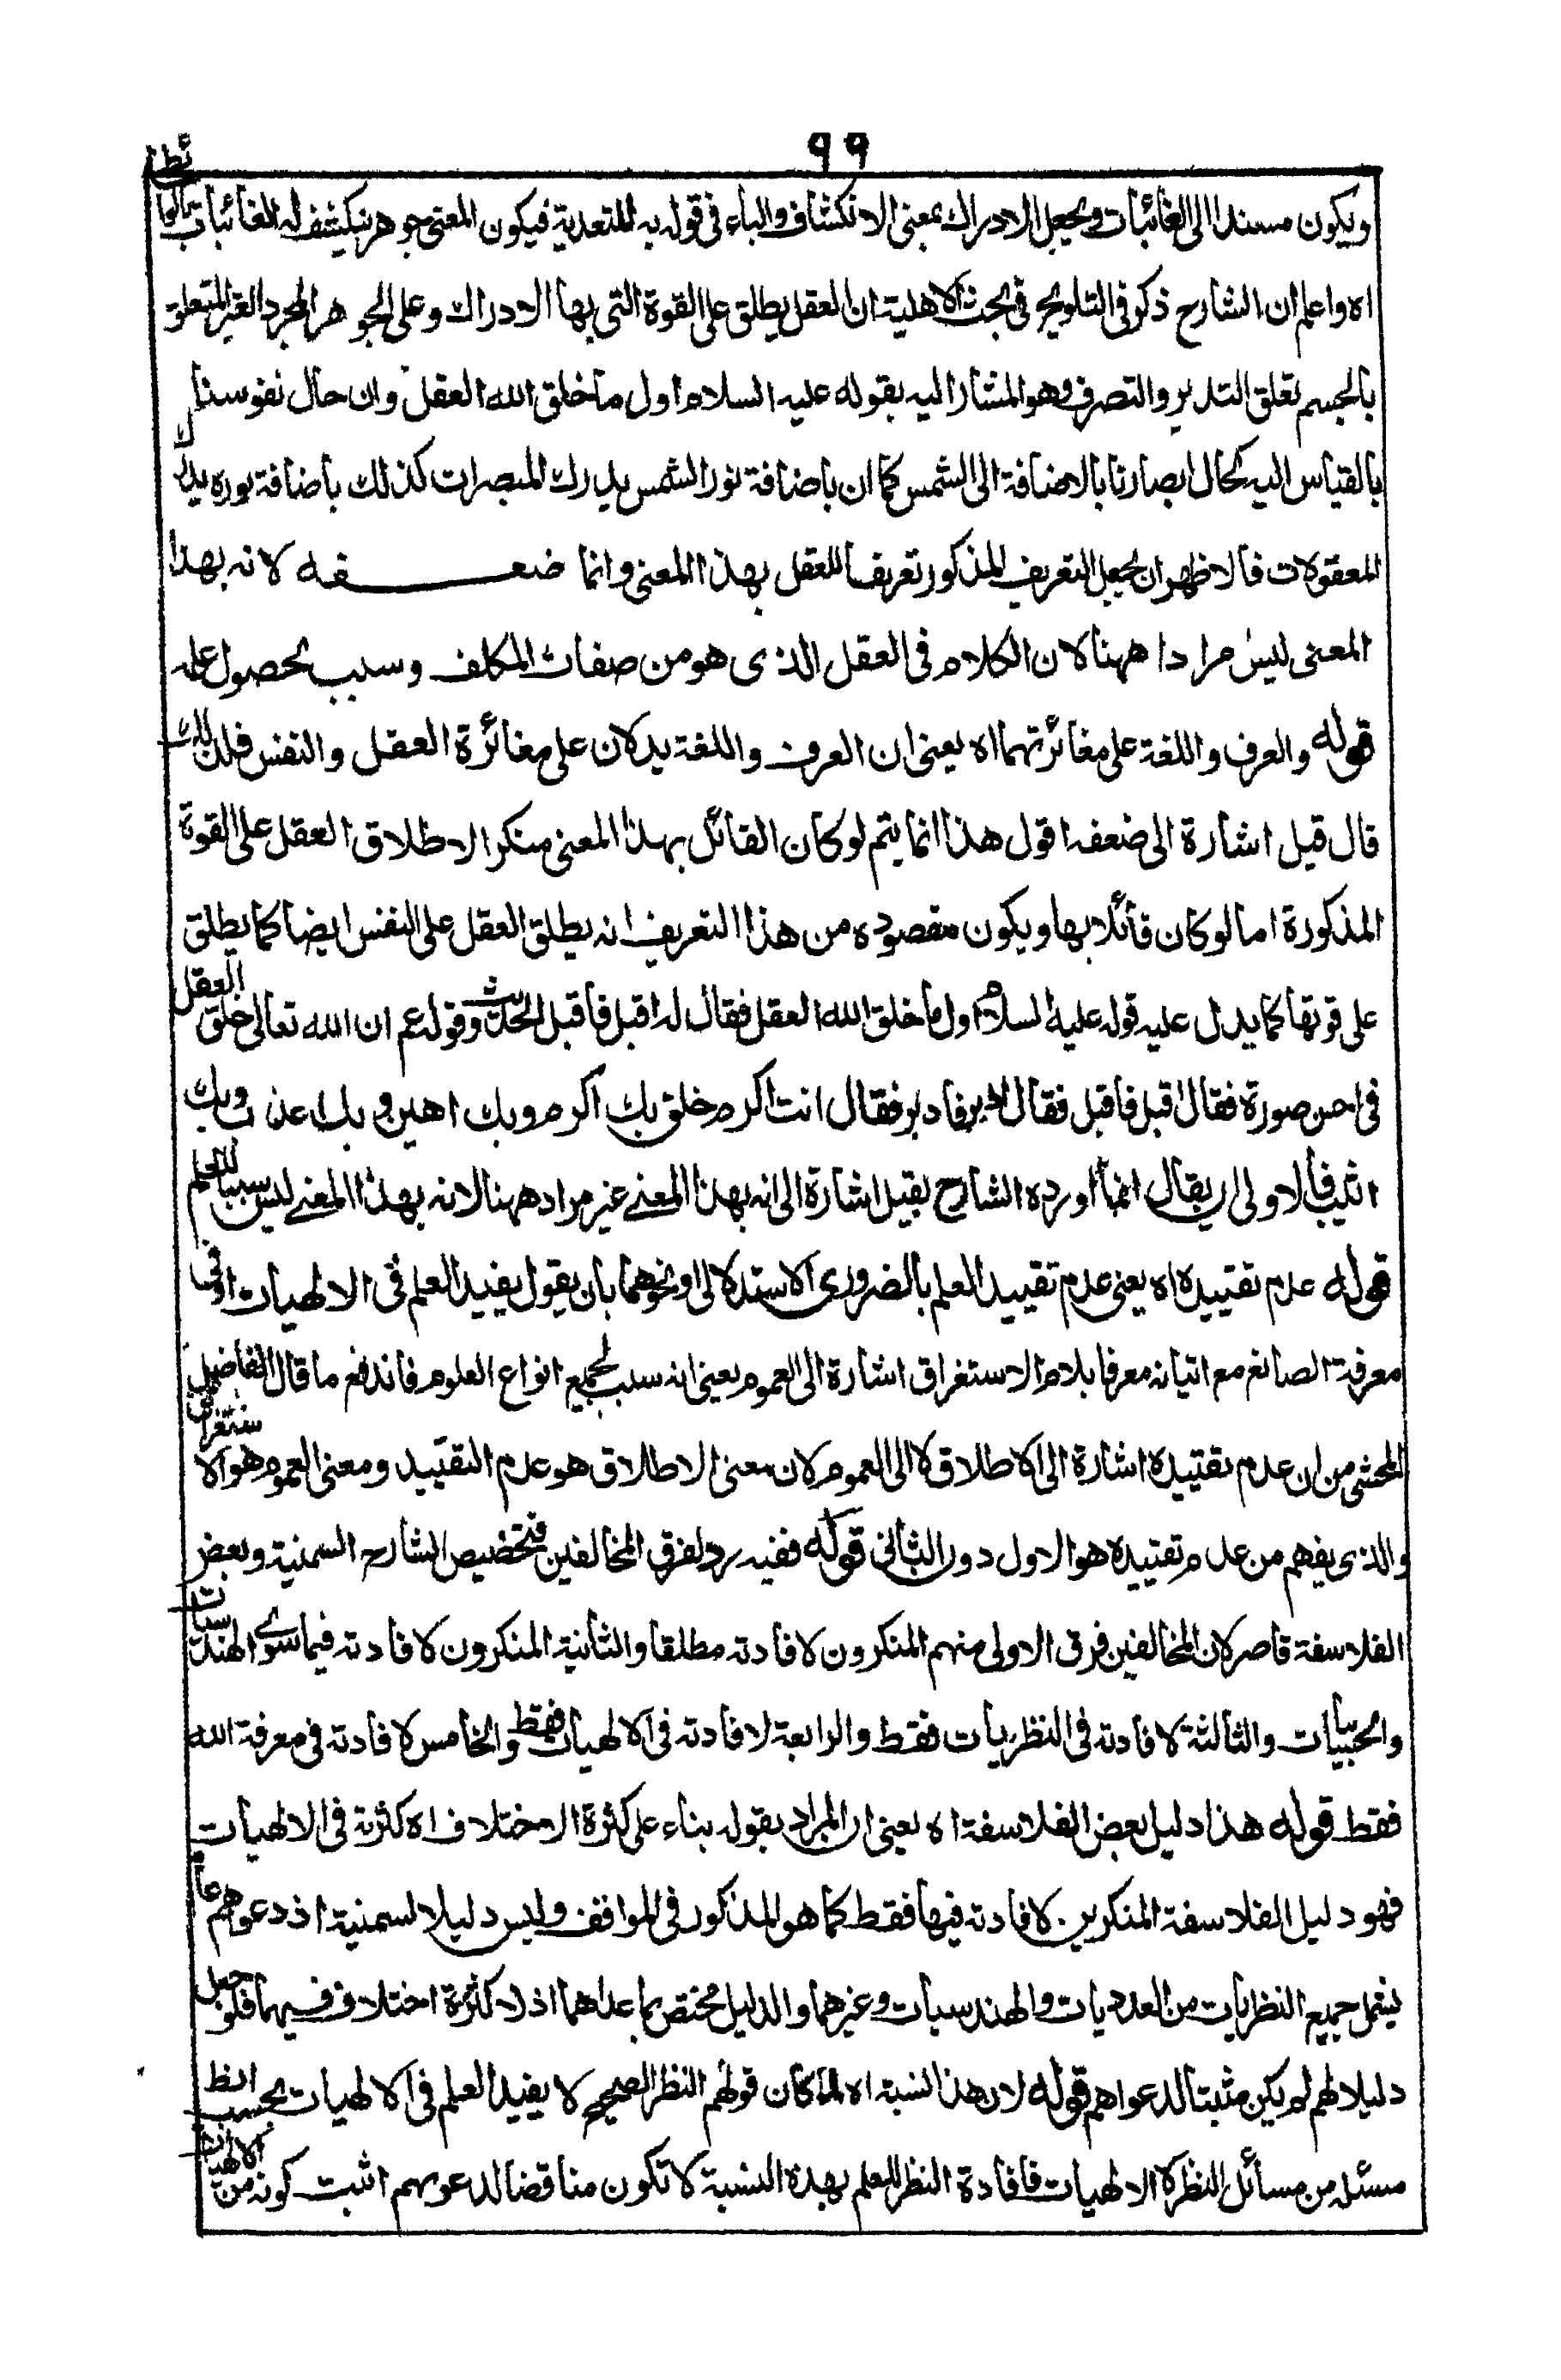 ٩٩
ويكون مسندا الى الغائبات ويجعل الادراك بمعنى الانكشاف والباء فى قوله به للتعدية فيكون المعنى جوهر ينكشف له الغائبات بالوسائط
اه واعلم ان الشارح ذكر فى التلويح فى بحث الاهلية ان العقل يطلق على القوة التى بها الادراك وعلى الجوهر المجرد الغير المتعلق
بالجسم تعلق التدبير والتصرف وهو المشار اليه بقوله عليه السلام اول ما خلق الله العقل وان حال نفوسنا
بالقياس اليه كحال ابصارنا بالاضافة الى الشمس كما ان باضافة نور الشمس يدرك المبصرات كذلك باضافة نوره يدرك
المعقولات فالاظهر ان يجعل التعريف المذكور تعريفا للعقل بهذا المعنى وانما ضعفه لانه بهذا
المعنى ليس مرادا ههنا لان الكلام فى العقل الذى هو من صفات المكلف وسبب لحصول علمه
قوله والعرف واللغة على مغائرتهما اه يعنى ان العرف واللغة يدلان على مغائرة العقل والنفس فلذلك
قال قيل اشارة الى ضعفه اقول هذا انما يتم لو كان القائل بهذا المعنى منكرا لاطلاق العقل على القوة
المذكورة اما لو كان قائلا بها ويكون مقصوده من هذا التعريف انه يطلق العقل على النفس ايضا كما يطلق
على قوتها كما يدل عليه قوله عليه السلام اول ما خلق الله العقل فقال له اقبل فاقبل الحديث وقوله عم ان الله تعالى خلق العقل
فى احسن صورة فقال اقبل فاقبل فقال ادبر فادبر فقال انت اكرم خلق بك اكرم وبك اهين وبك اعذب وبك
اثيب فالاولى ان يقال انما اورده الشارح بقيل اشارة الى انه بهذا المعنے غير مراد ههنا لانه بهذا المعنے ليس سببا للعلم
قوله عدم تقييده اه يعنى عدم تقييد العلم بالضرورى الاستدلالى او نحوهما بان يقول يفيد العلم فى الالهيات او فى
معرفة الصانع مع اتيانه معرفا بلام الاستغراق اشارة الى العموم يعنى انه سبب لجميع انواع العلوم فاندفع ما قال الفاضل
المحشى من ان عدم تقييده اشارة الى الاطلاق لا الى العموم لان معنى الاطلاق هو عدم التقييد ومعنى العموم هو الاستغراق
والذى يفهم من عدم تقييده هو الاول دون الثانى قوله ففيه رد لفرق المخالفين فتخصيص الشارح السمنية وبعض
الفلاسفة قاصر لان المخالفين فرق الاولى منهم المنكرون لافادته مطلقا والثانية المنكرون لافادته فيما سوى الهندسات
والحسابيات والثالثة لافادته فى النظريات فقط والرابعة لافادته فى الالهيات فقط والخامس لافادته فى معرفة الله
فقط قوله هذا دليل بعض الفلاسفة اه يعنى ان المراد بقوله بناء على كثرة الاختلاف اه كثرته فى الالهيات
فهو دليل الفلاسفة المنكرين لافادته فيها فقط كما هو المذكور فى المواقف وليس دليلا لسمنية اذ دعواهم عام
يشمل جميع النظريات من العدديات والهندسيات وغيرهما والدليل مختص بما عداهما اذ لا كثرة اختلاف فيهما فلو جعل
دليلا لهم لم يكن مثبتا لدعواهم قوله لان هذا لنسبة اه لما كان قولهم النظر الصحيح لا يفيد العلم فى الالهيات بحسب الظ
مسئلة من مسائل النظر لا الالهيات فافادة النظر للعلم بهذه النسبة لا تكون مناقضا لدعوىهم اثبت كونه من الالهيات